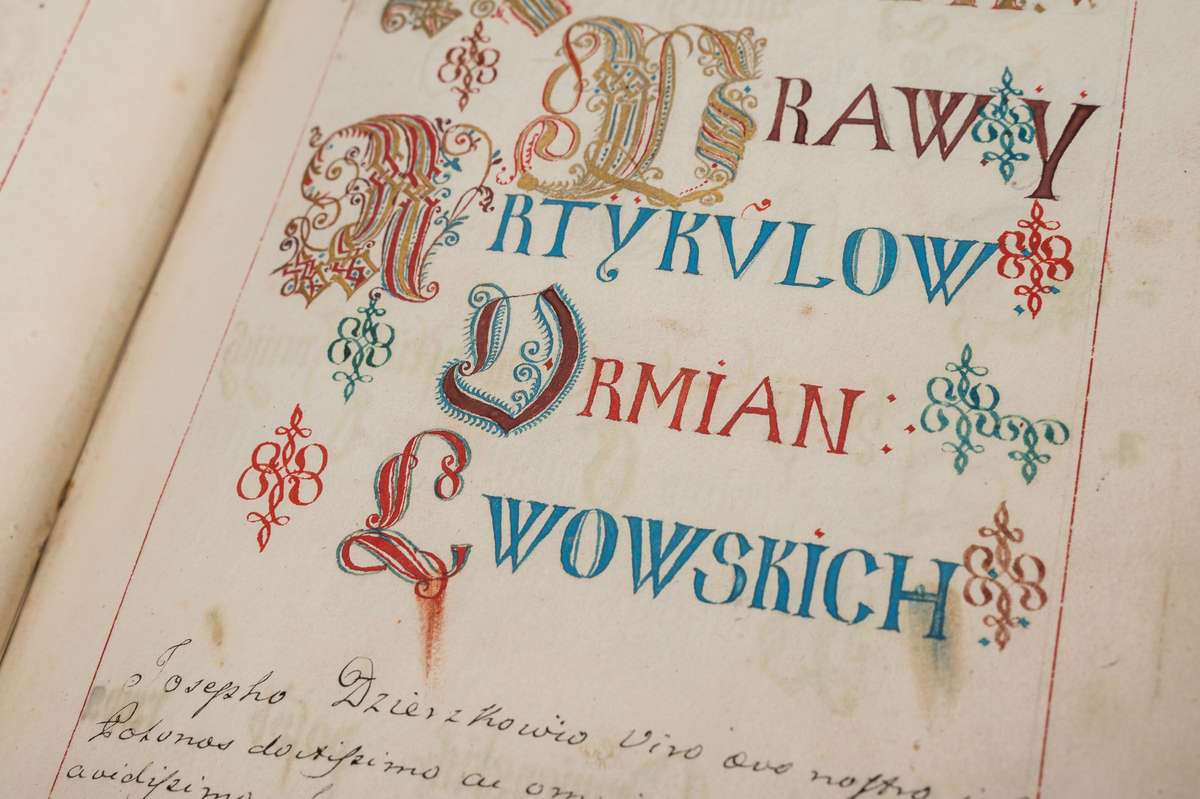 PRAWŸ
ARTŸKVLOW
ORMIAN:
LWOWSKICH
Josepho Dzierzkowio Viro ævo noſtro
Polonos doctiſsimo ac
avidiſsimo